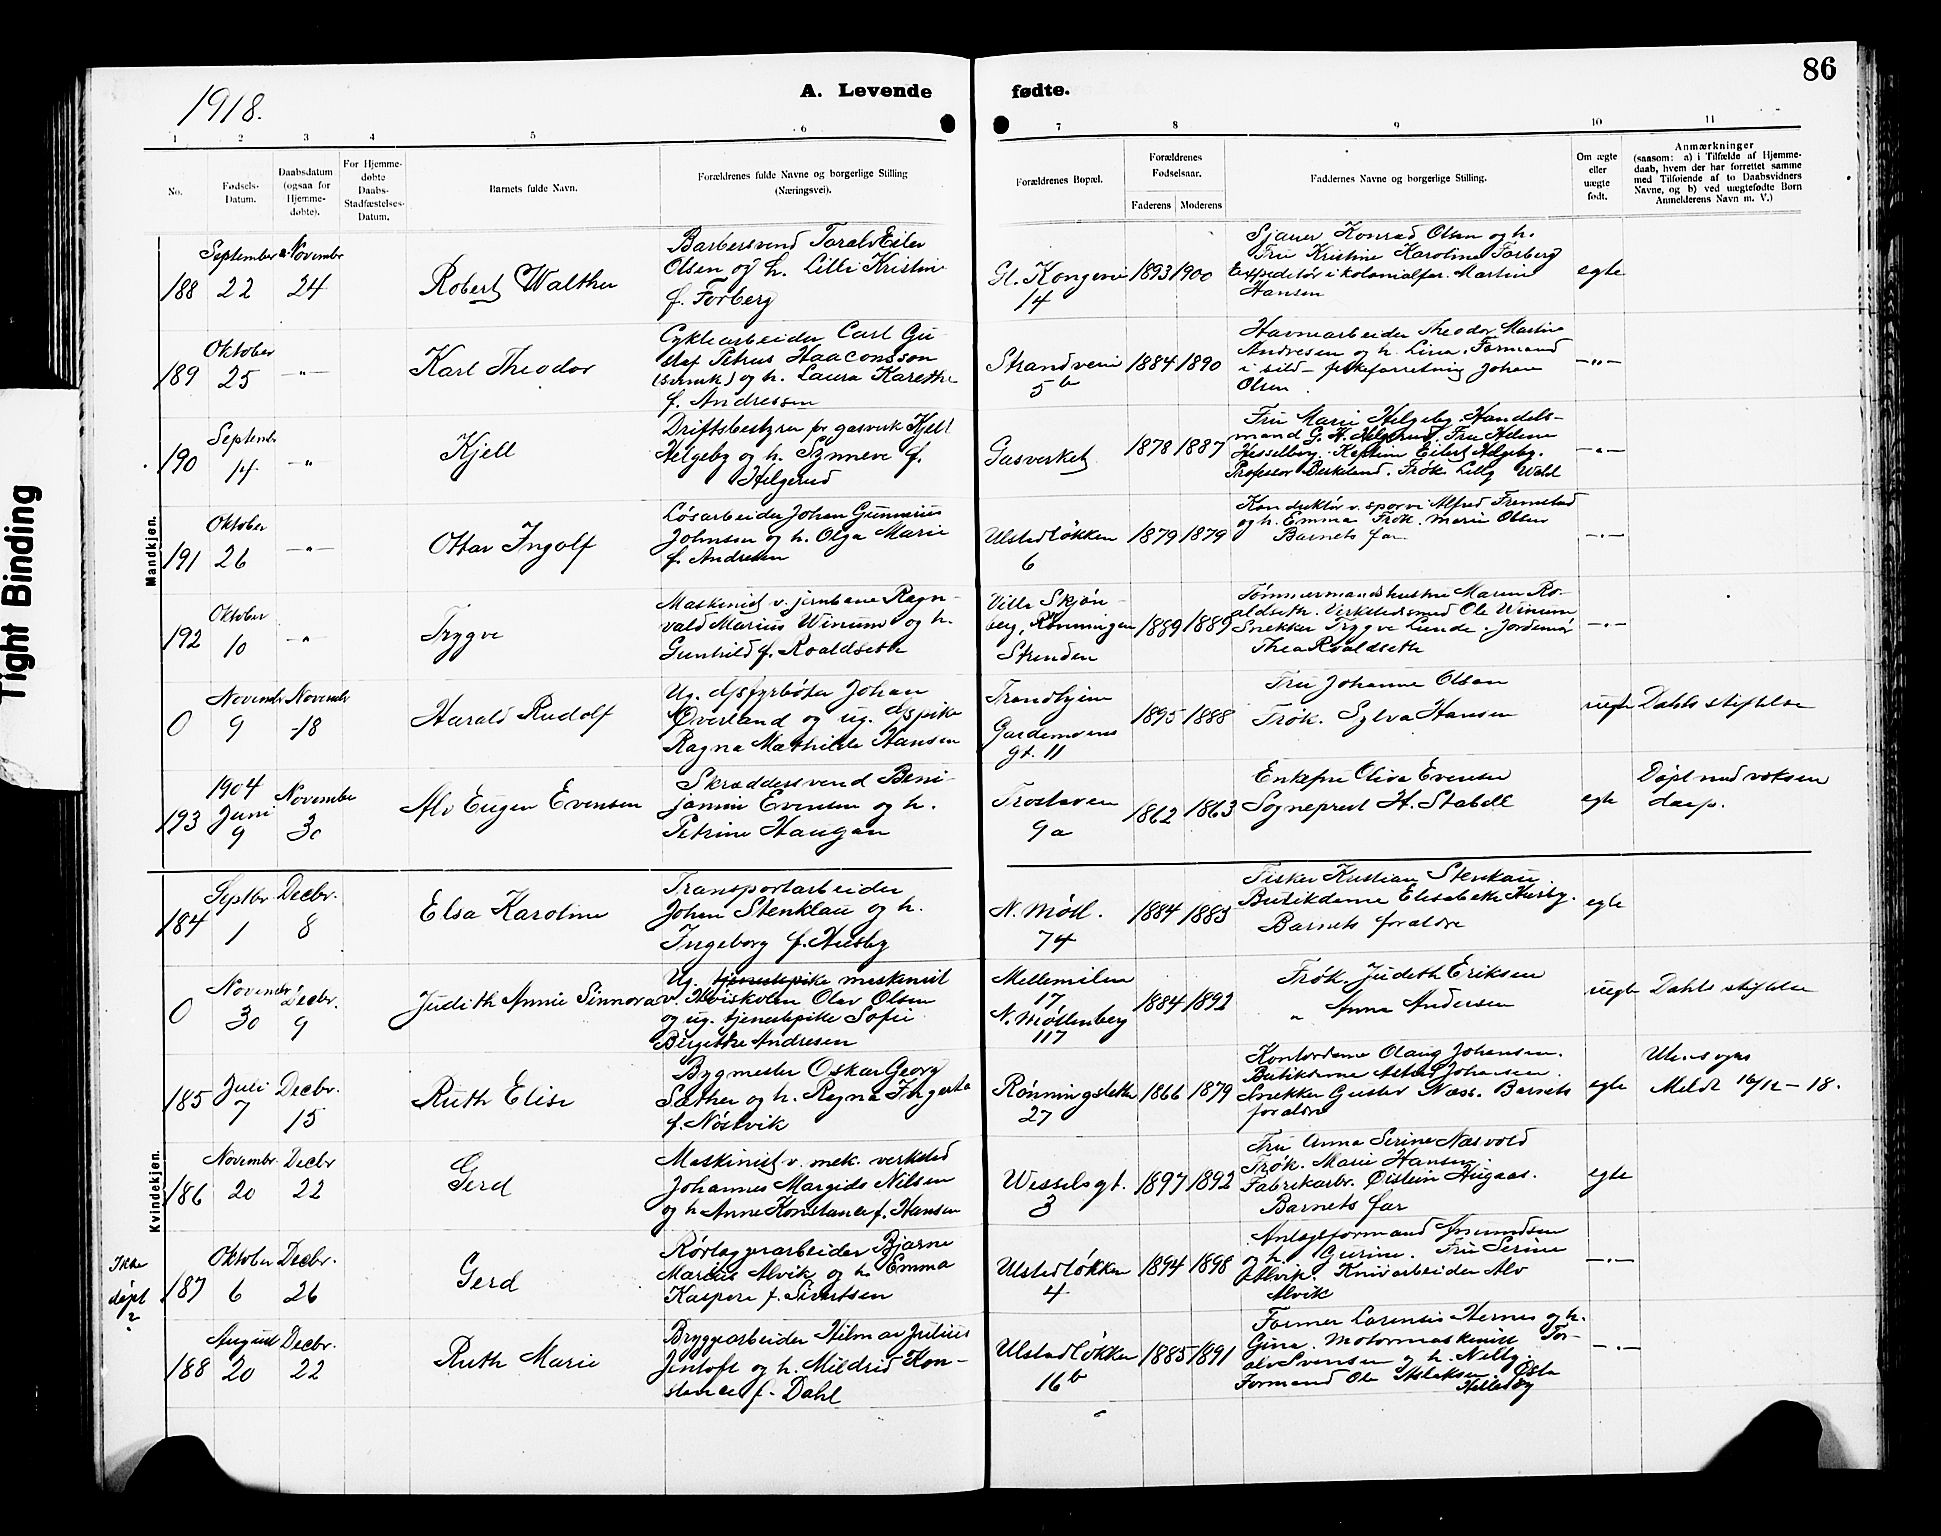 Tight Binding
86
1918.
A. Levende fødte.
1 2 3 4 5 6 7 8 9 10 11
No.
Fødsels-
Datum.
Daabsdatum
(ogsaa for
Hjemme-
døbte).
For Hjemme-
døbte
Daabs-
Stadfæstelses-
Datum.
Barnets fulde Navn.
Forældrenes fulde Navne og borgerlige Stilling
(Næringsvei).
Forældrenes Bopæl.
Forældrenes
Fødselsaar.
Faderens Moderens
Faddernes Navne og borgerlige Stilling.
Om ægte
eller
uægte
født.
Anmærkninger
(saasom: a) i Tilfælde af Hjemme-
daab, hvem der har forrettet samme
med Tilføiende af to Daabsvidners
Navne, og b) ved uægtefødte Børn
Anmelderens Navn m. V.)
Mandkjøn.
188
September
22
Novembr
24
Robert Walther
Barbersvend Toralv Eiler
Olsen og h. Lilli Kristine
f. Forberg
Gl. Kongevei
14
1893 1900
Sjauer Konrad Olsen og h.
Fru Kristine Karoline Forberg
Expeditør i kolonialfor. Martin
Hansen
egte
189
Oktober
25
-"-
Karl Theodor
Cyklearbeider Carl Gu-
staf Petrus Haaconsson
(svensk) og h. Laura Karethe
f. Andressen
Strandveien
5b
1884 1890
Havnearbeider Theodor Martin
Andresen og h. Lina. Formand
i sild- fiskeforretning Johan
Olsen
-"-
190
Septembr
14
-"-
Kjell
Driftsbestyrer for gasverk Kjell
Helgeby og h. Synneve f.
Helgerud
Gasverket
1878 1887
Fru Marie Helgeby. Handels-
mand G. H. Helgerud. Fru Helene
Hesselberg. Kaptein Eilert Helgeby.
Professor Birkeland. Frøk. Lilly Wold
-"-
191
Oktober
26
-"-
Ottar Ingolf
Løsarbeider Johan Gunnerius
Johnsen og h. Olga Marie
f. Andresen
Ulstadløkken
6
1879 1879
Konduktør v. sporvei Alfred Fremstad
og h. Emma. Frøk. Marie Olsen
Barnets far
-"-
192
Oktober
10
-"-
Trygve
Maskinist v. jernbane Ragn-
vald Marius Winum og h.
Gunhild f. Roaldseth
Villa Skjøn-
berg, Rønningen
Strinden
1889 1889
Tømmermandshustru Maren Ro-
aldseth. Verkstedsmed Ole Winum
Snekker Trygve Lunde. Jordemor
Thea Roaldseth
-"-
0
Novembr
9
Novembr
18
Harald Rudolf
Ug. dpsfyrbøter Johan
Øverland og ug. dpspike
Ragna Mathilde Hansen
Trondhjem
Gardemoens
gt. 11
1895 1888
Fru Johanne Olsen
Frøk. Sylva Hansen
uegte
Dahls stiftelse
193
1904
Juni
9
Novembr
30
Alv Eugen Evensen
Skræddersvend Beni-
jamin Evensen og h.
Petrine Haugan
Frostaveien
9a
1862 1863
Enkefru Oliva Evensen
Sogneprest H. Stabell
egte
Døpt med voksen
daap.
Kvindekjøn.
184
Septbr.
1
Decbr.
8
Elsa Karoline
Transportarbeider
Johan Stenklau og h.
Ingeborg f. Husby
N. Møll.
74
1884 1883
Fisker Kristian Stenklau.
Butikdame Elisabeth Husby.
Barnets foreldre
egte
0
Novembr
30
Decbr.
9
Judith Annie Sinnora
Ug. tjenestepike maskinist
v. Høiskolen Olav Olsen
og ug. tjenestepike Sofie
Birgitthe Andresen
Mellemilen
17
N. Møllenberg
117
1884 1892
Frøk. Judith Eriksen
" Anna Andersen
uegte
Dahls stiftelse
185
Juli
7
Decbr.
15
Ruth Elise
Bygmester Oskar Georg
Sæther og h. Ragna Ingerta
f. Nøstvik
Rønningsletta
27
1866 1879
Kontordame Olaug Johansen.
Butikdame Astrid Johansen.
Snekker Gustav Næss. Barnets
foreldre
egte
Utensogns
Meldt 16/12-18.
186
Novembr.
20
Decbr
22
Gerd
Maskinist v. mek. verksted
Johannes Margido Nilsen
og h. Anne Konstance f. Hansen
Wesselsgt.
3
1897 1892
Fru Anna Serine Næsvold
Frøk. Marie Hansen.
Fabrikarbr. Øistein Hugaas.
Barnets far
egte
Ikke
døpt
?
187
Oktober
6
Decbr.
26
Gerd
Rørlæggerarbeider Bjarne
Marius Alvik og h. Emma
Kaspara f. Sivertsen
Ulstadløkken
4
1894 1898
Anlægsformand Amundsen
og h. Gurine. Fru Serine
Alvik. Knivarbeider Alv
Alvik
-"-
188
August
20
Decbr.
22
Ruth Marie
Bryggearbeider Hilmar Julius
Jentoft og h. Mildrid Kon-
stance f. Dahl
Ulstadløkken
16b
1885 1891
Former Lorentsis Hernes og h.
Gina. Motormaskinist Tor-
alv Svensen og h. Nelly.
Formand Ole Aslaksen. Østa
Hellesby
-"-